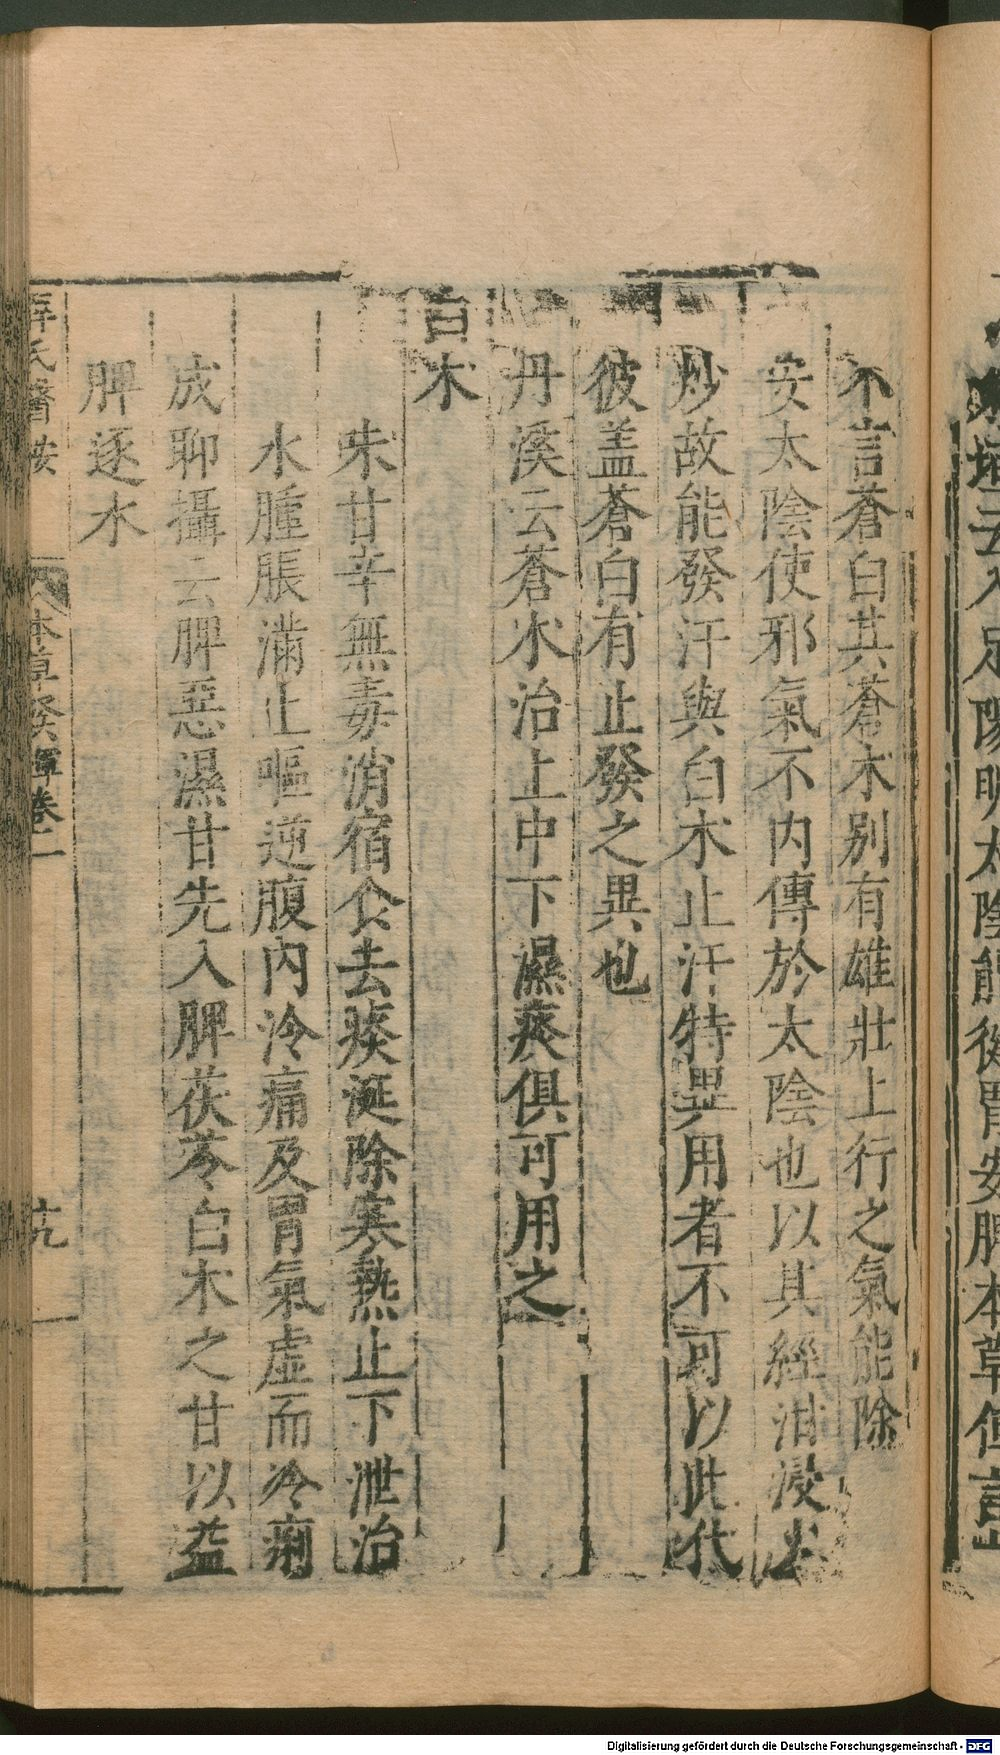 東垣云入足陽明太陰能徤胃安脾本草但言
不言蒼白其蒼朮别有雄壯上行之氣能除
安太陰使邪氣不内傳於太陰也以其經泔浸火
炒故能發汗與白朮止汗特異用者不可以此代
彼盖蒼白有止發之異也
丹溪云蒼朮治上中下濕痰俱可用之
白朮
味甘辛無毒消宿食去痰涎除寒熱止下泄治
水腫脹滿止嘔逆腹内冷痛及胃氣虛而冷痢
成聊攝云脾惡濕甘先入脾茯苓白朮之甘以益
脾逐水
薛氏醫按
本草發揮卷二
Digitalisierung gefördert durch die Deutsche Forschungsgemeinschaft - DFG